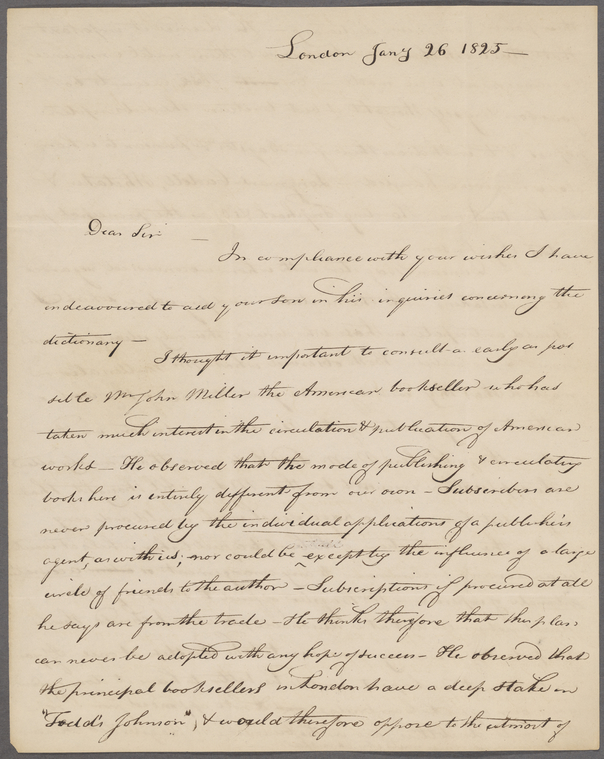 London Jany 26 1825 —
Dear Sir —
In compliance with your wishes I have
endeavoured to aid your son in his inquiries concerning the
dictionary —
I thought it important to consult as early as pos
sible Mr John Miller the American bookseller who has
taken much interest in the circulation & publication of American
works — He observed that the mode of publishing & circulating
books here is entirely different from our own — Subscribers are
never procured by the individual applications of a publisher's
agent, as with us; nor could be ^ except by the influence of a large
circle of friends to the author — Subscriptions if procured at all
he says are from the trade — He thinks therefore that this plan
can never be adopted with any hope of success — He observed that
the principal booksellers in London have a deep stake in
"Todd's Johnson", & would therefore oppose to the utmost of